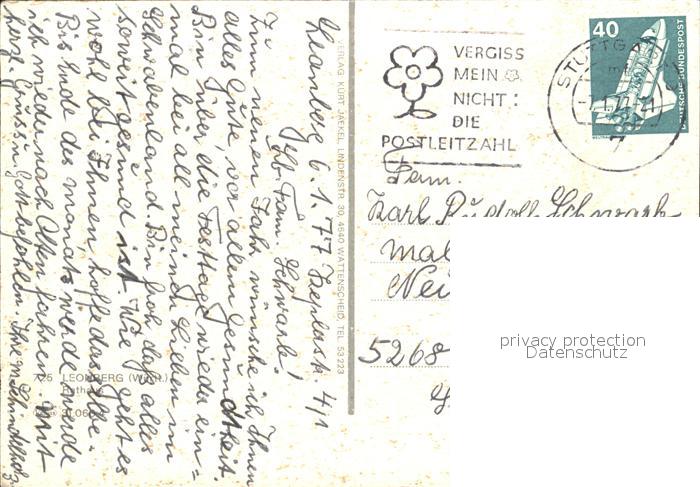 Leonberg 6.1.77 Keplerstr. 4/1
Fam. Schwark!
Zum neuen Jahr wünsche ich Ihnen
alles Gute, vor allem Gesundheit.
Bin über die Festtage wieder ein=
mal bei all meinen Lieben im
Schwabenland. Bin froh daß alles
soweit gesund ist. Wie geht es
wohl bei Ihnen hoffe dasselbe.
Bis Ende des Monats werde
ich wieder nach fahren. Mit
herz. Grüssen Gott befohlen. Ihre
725 LEONBERG (Württ.)
Rathaus
VERLAG KURT JAEKEL, LINDENSTR. 30, 4640 WATTENSCHEID, TEL. 53223
VERGISS
MEIN
NICHT:
DIE
POSTLEITZAHL
STUTTGA
40
DEUTSCHE BUNDESPOST
Fam.
Karl Rudolf Schwark
5268
privacy protection
Datenschutz